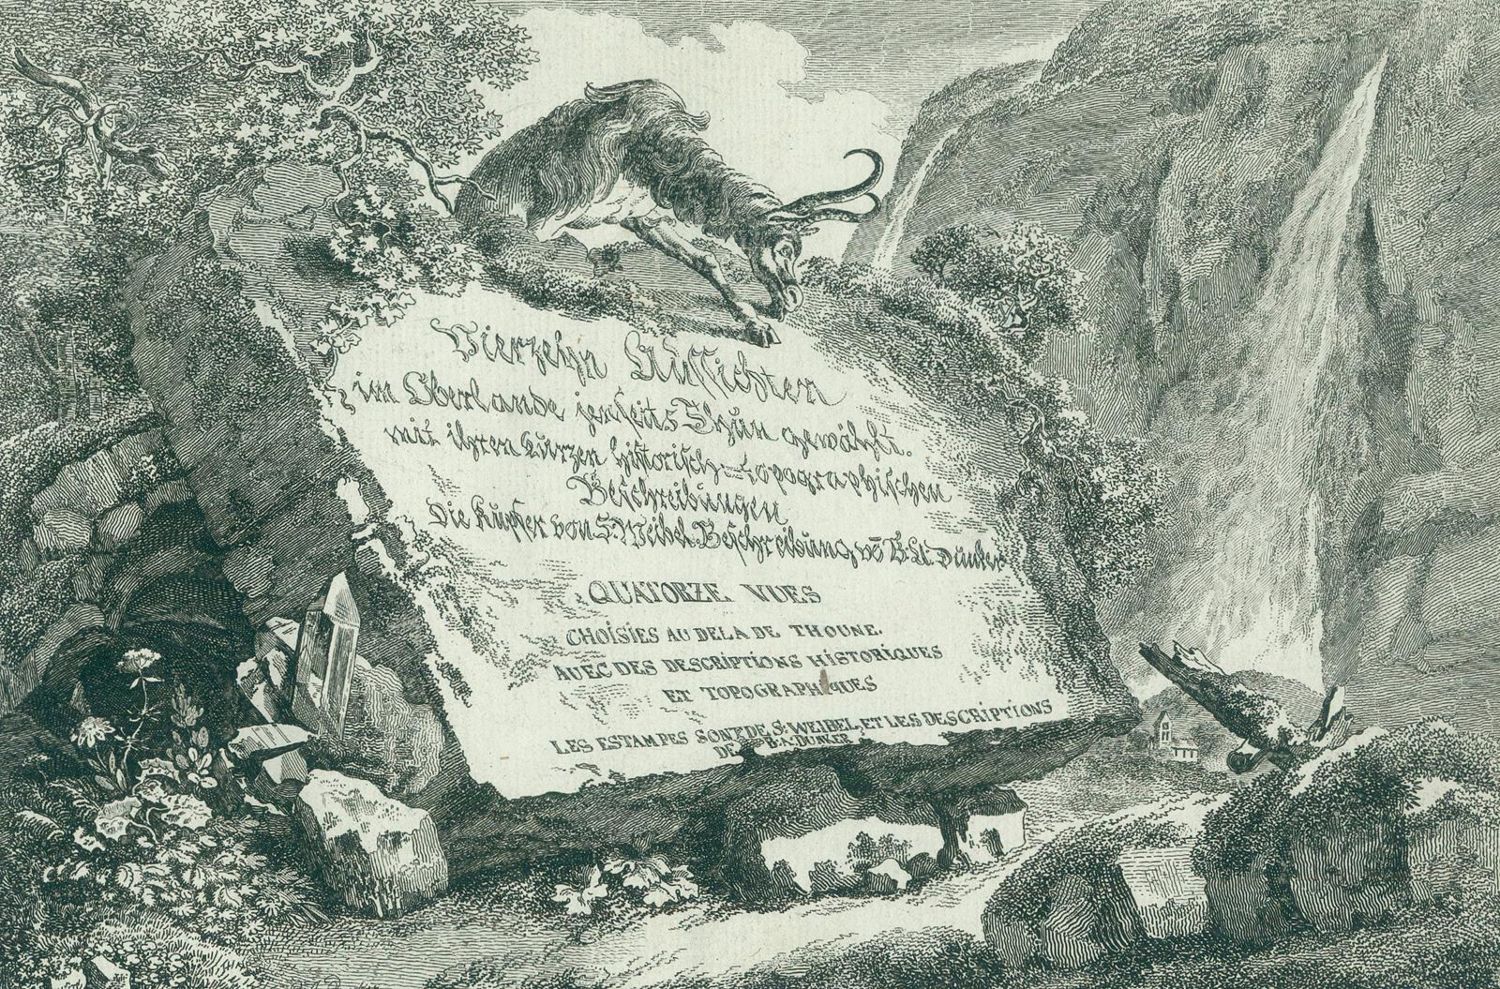 Vierzehn Aussichten
im Oberlande jenseits Thun gewählt.
mit ihren kurzen historisch-topographischen
Beschreibungen
Die Kupfer von S. Weibel. Beschreibung vō B. A. Dunker
QUATORZE VUES
CHOISIES AU DELA DE THOUNE.
AVEC DES DESCRIPTIONS HISTORIQUES
ET TOPOGRAPHIQUES
LES ESTAMPES SONT DE S. WEIBEL, ET LES DESCRIPTIONS
DE B. A. DUNKER